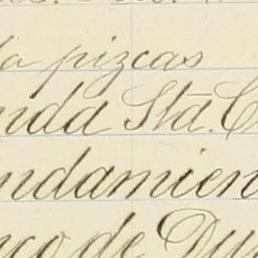 da pizcas
nda Sta. C
ndamien
nco de Du